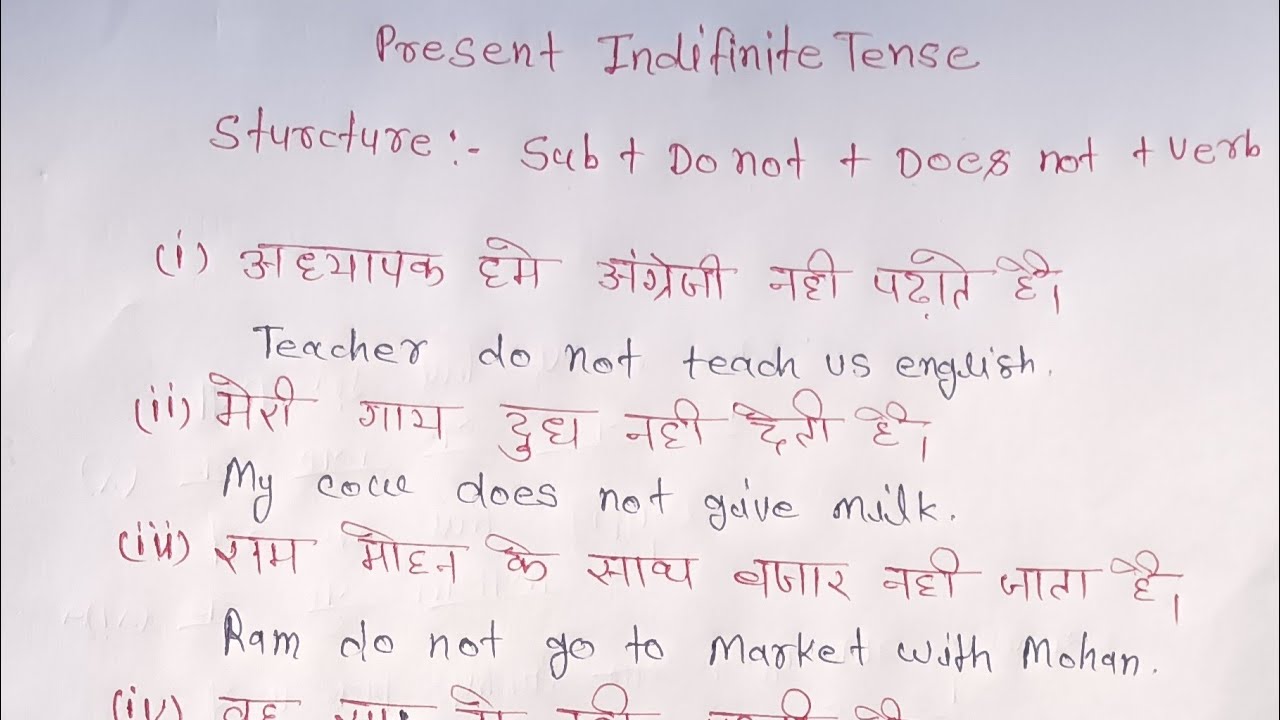 Present Indifinite Tense
Sturcture :- Sub + Do not + Does not + Verb
(i) अध्यापक हमे अंग्रेजी नही पढ़ाते है।
Teacher do not teach us english.
(ii) मेरी गाय दुध नही देती है।
My cow does not give milk.
(iii) राम मोहन के साथ बजार नही जाता है।
Ram do not go to market with Mohan.
(iv) वह